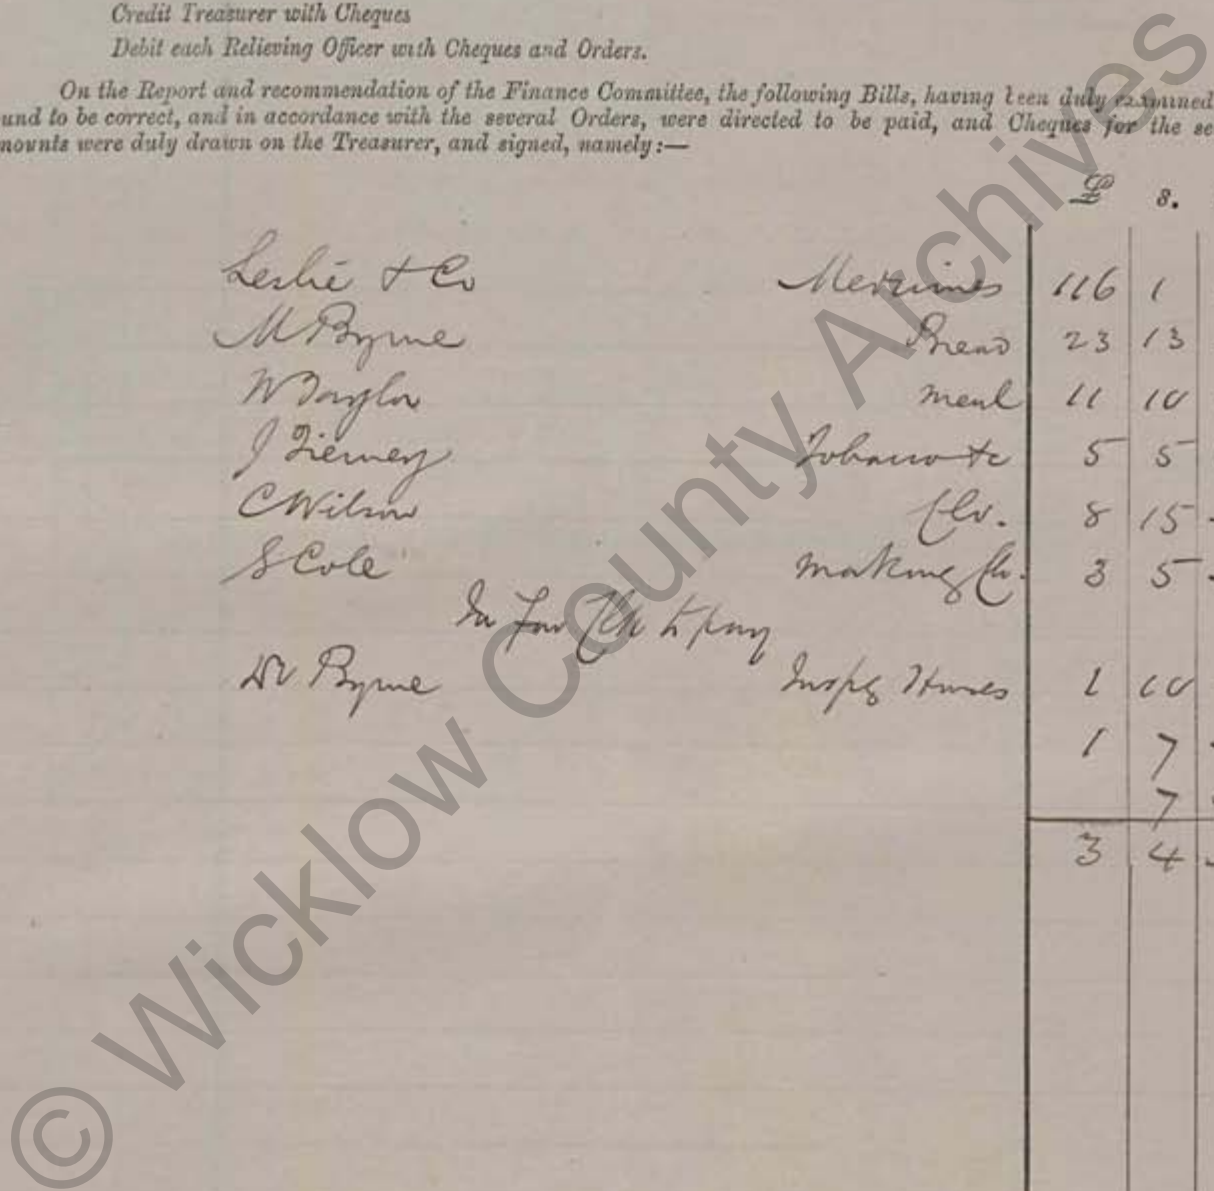 Credit Treasurer with Cheques
Debit each Relieving Officer with Cheques and Orders.
On the Report and recommendation of the Finance Committee, the following Bills, having been duly examined
und to be correct, and in accordance with the several Orders, were directed to be paid, and Cheques for the se
mounts were duly drawn on the Treasurer, and signed, namely:—
£ s.
Leslie & Co Medicines 116 1
M Byrne Bread 23 13
W Taylor meal 11 10
J Tierney Tobacco &c 5 5
C Wilson Clo. 8 15
S Cole making Clo. 3 5
to pay
Dr Byrne Inspg Homes 1 10
1 7
7
3 4
© Wicklow County Archives